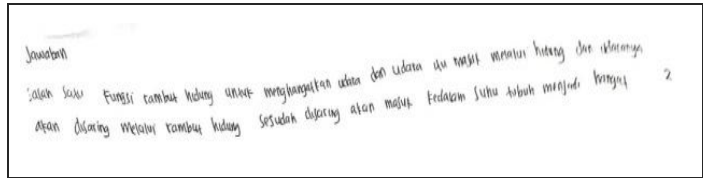 Jawaban
salah satu fungsi rambut hidung untuk menghangatkan udara dan udara itu masuk melalui hidung dan
akan disaring melalui rambut hidung sesudah disaring akan masuk kedalam suhu tubuh menjadi hangat 2